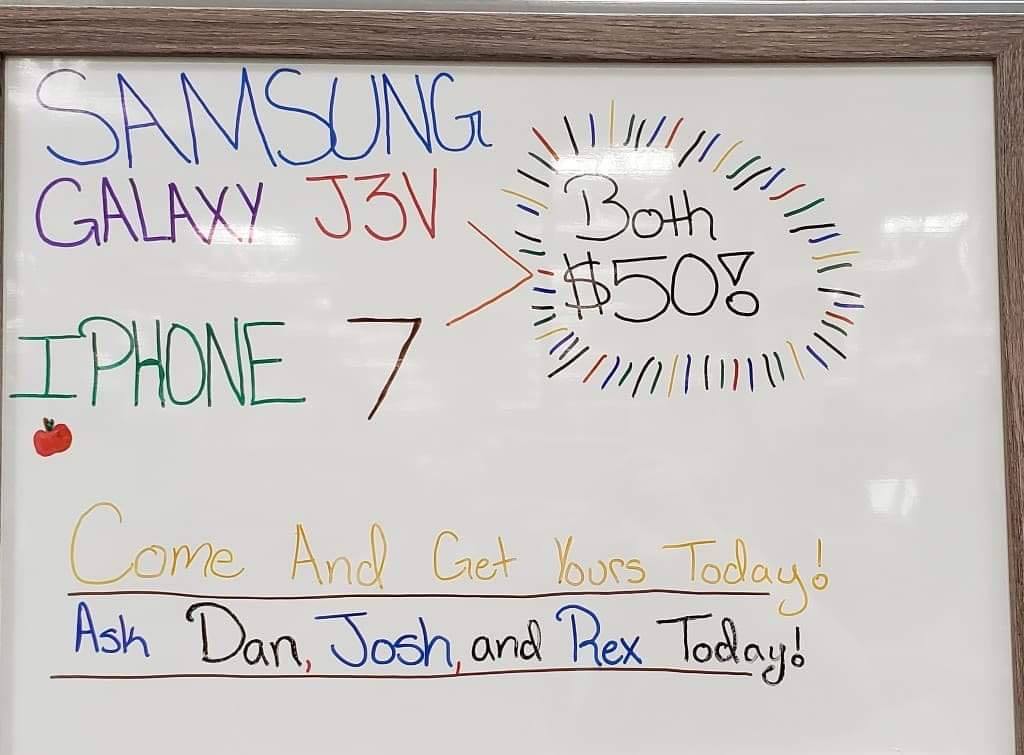 SAMSUNG
GALAXY J3V
IPHONE 7
Both
$50!
Come And Get Yours Today!
Ask Dan, Josh, and Rex Today!